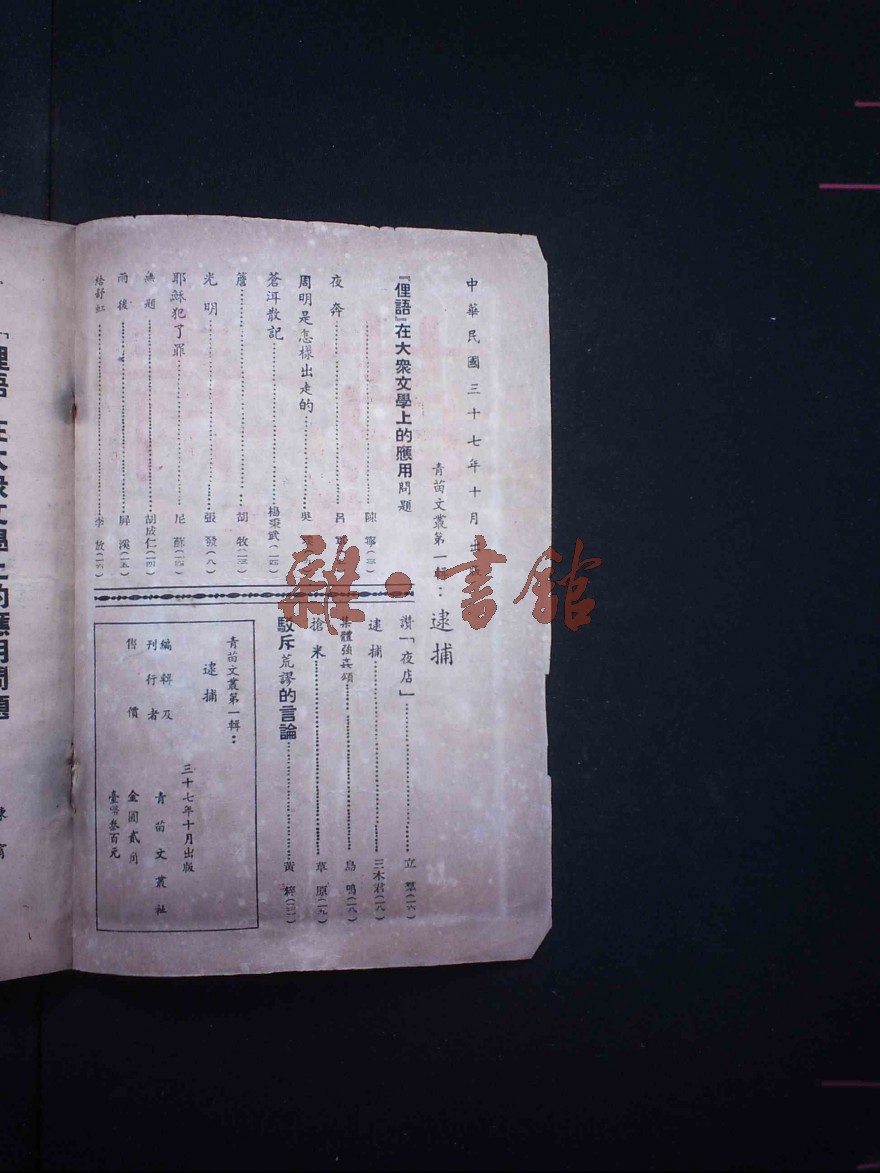 中華民國三十七年十月出版
青苗文叢第一輯：逮捕
『俚語』在大衆文學上的應用問題
陳寗(三)
夜奔 呂
周明是怎樣出走的 吳
蒼洱散記 楊秉武(一四)
薝 胡牧(一三)
光明 張發(八)
耶穌犯了罪 尼蘇(一四)
無題 胡成仁(一四)
雨後 屏溪(一五)
給舒虹 李放(一五)
讚「夜店」 立羣(一六)
逮捕 三木君(一八)
集體強姦頌 島鳴(一八)
搶米 草原(一九)
駁斥荒謬的言論 黃粹(二一)
青苗文叢第一輯：
逮捕
三十七年十月出版
編輯及
刊行者 青苗文叢社
售價 金圓貳角
臺幣叁百元
雜·書館
「俚語」在大衆文學上的應用問題
陳 甯